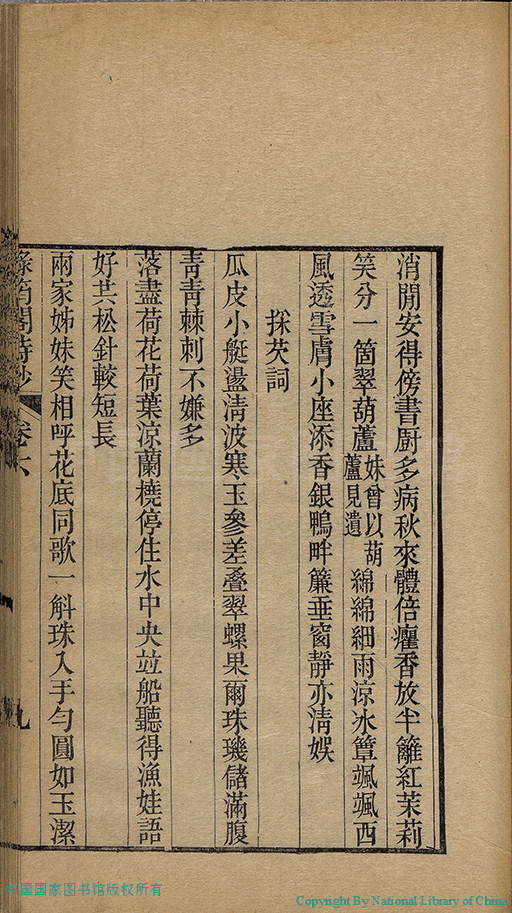 消閒安得傍書廚多病秋來體倍癯香放半籬紅茉莉
笑分一箇翠葫蘆妹曾以葫蘆見遺綿綿細雨涼冰簟颯颯西
風透雪膚小座添香銀鴨畔簾垂窗靜亦淸娛
採芡詞
瓜皮小艇盪淸波寒玉參差疊翠螺果爾珠璣儲滿腹
靑靑棘刺不嫌多
落盡荷花荷葉涼蘭橈停住水中央竝船聽得漁娃語
好共松針較短長
兩家姊妹笑相呼花底同歌一斛珠入手勻圓如玉潔
綠筠閣詩鈔 卷六 九
中国国家图书馆版权所有
Copyright By National Library of China